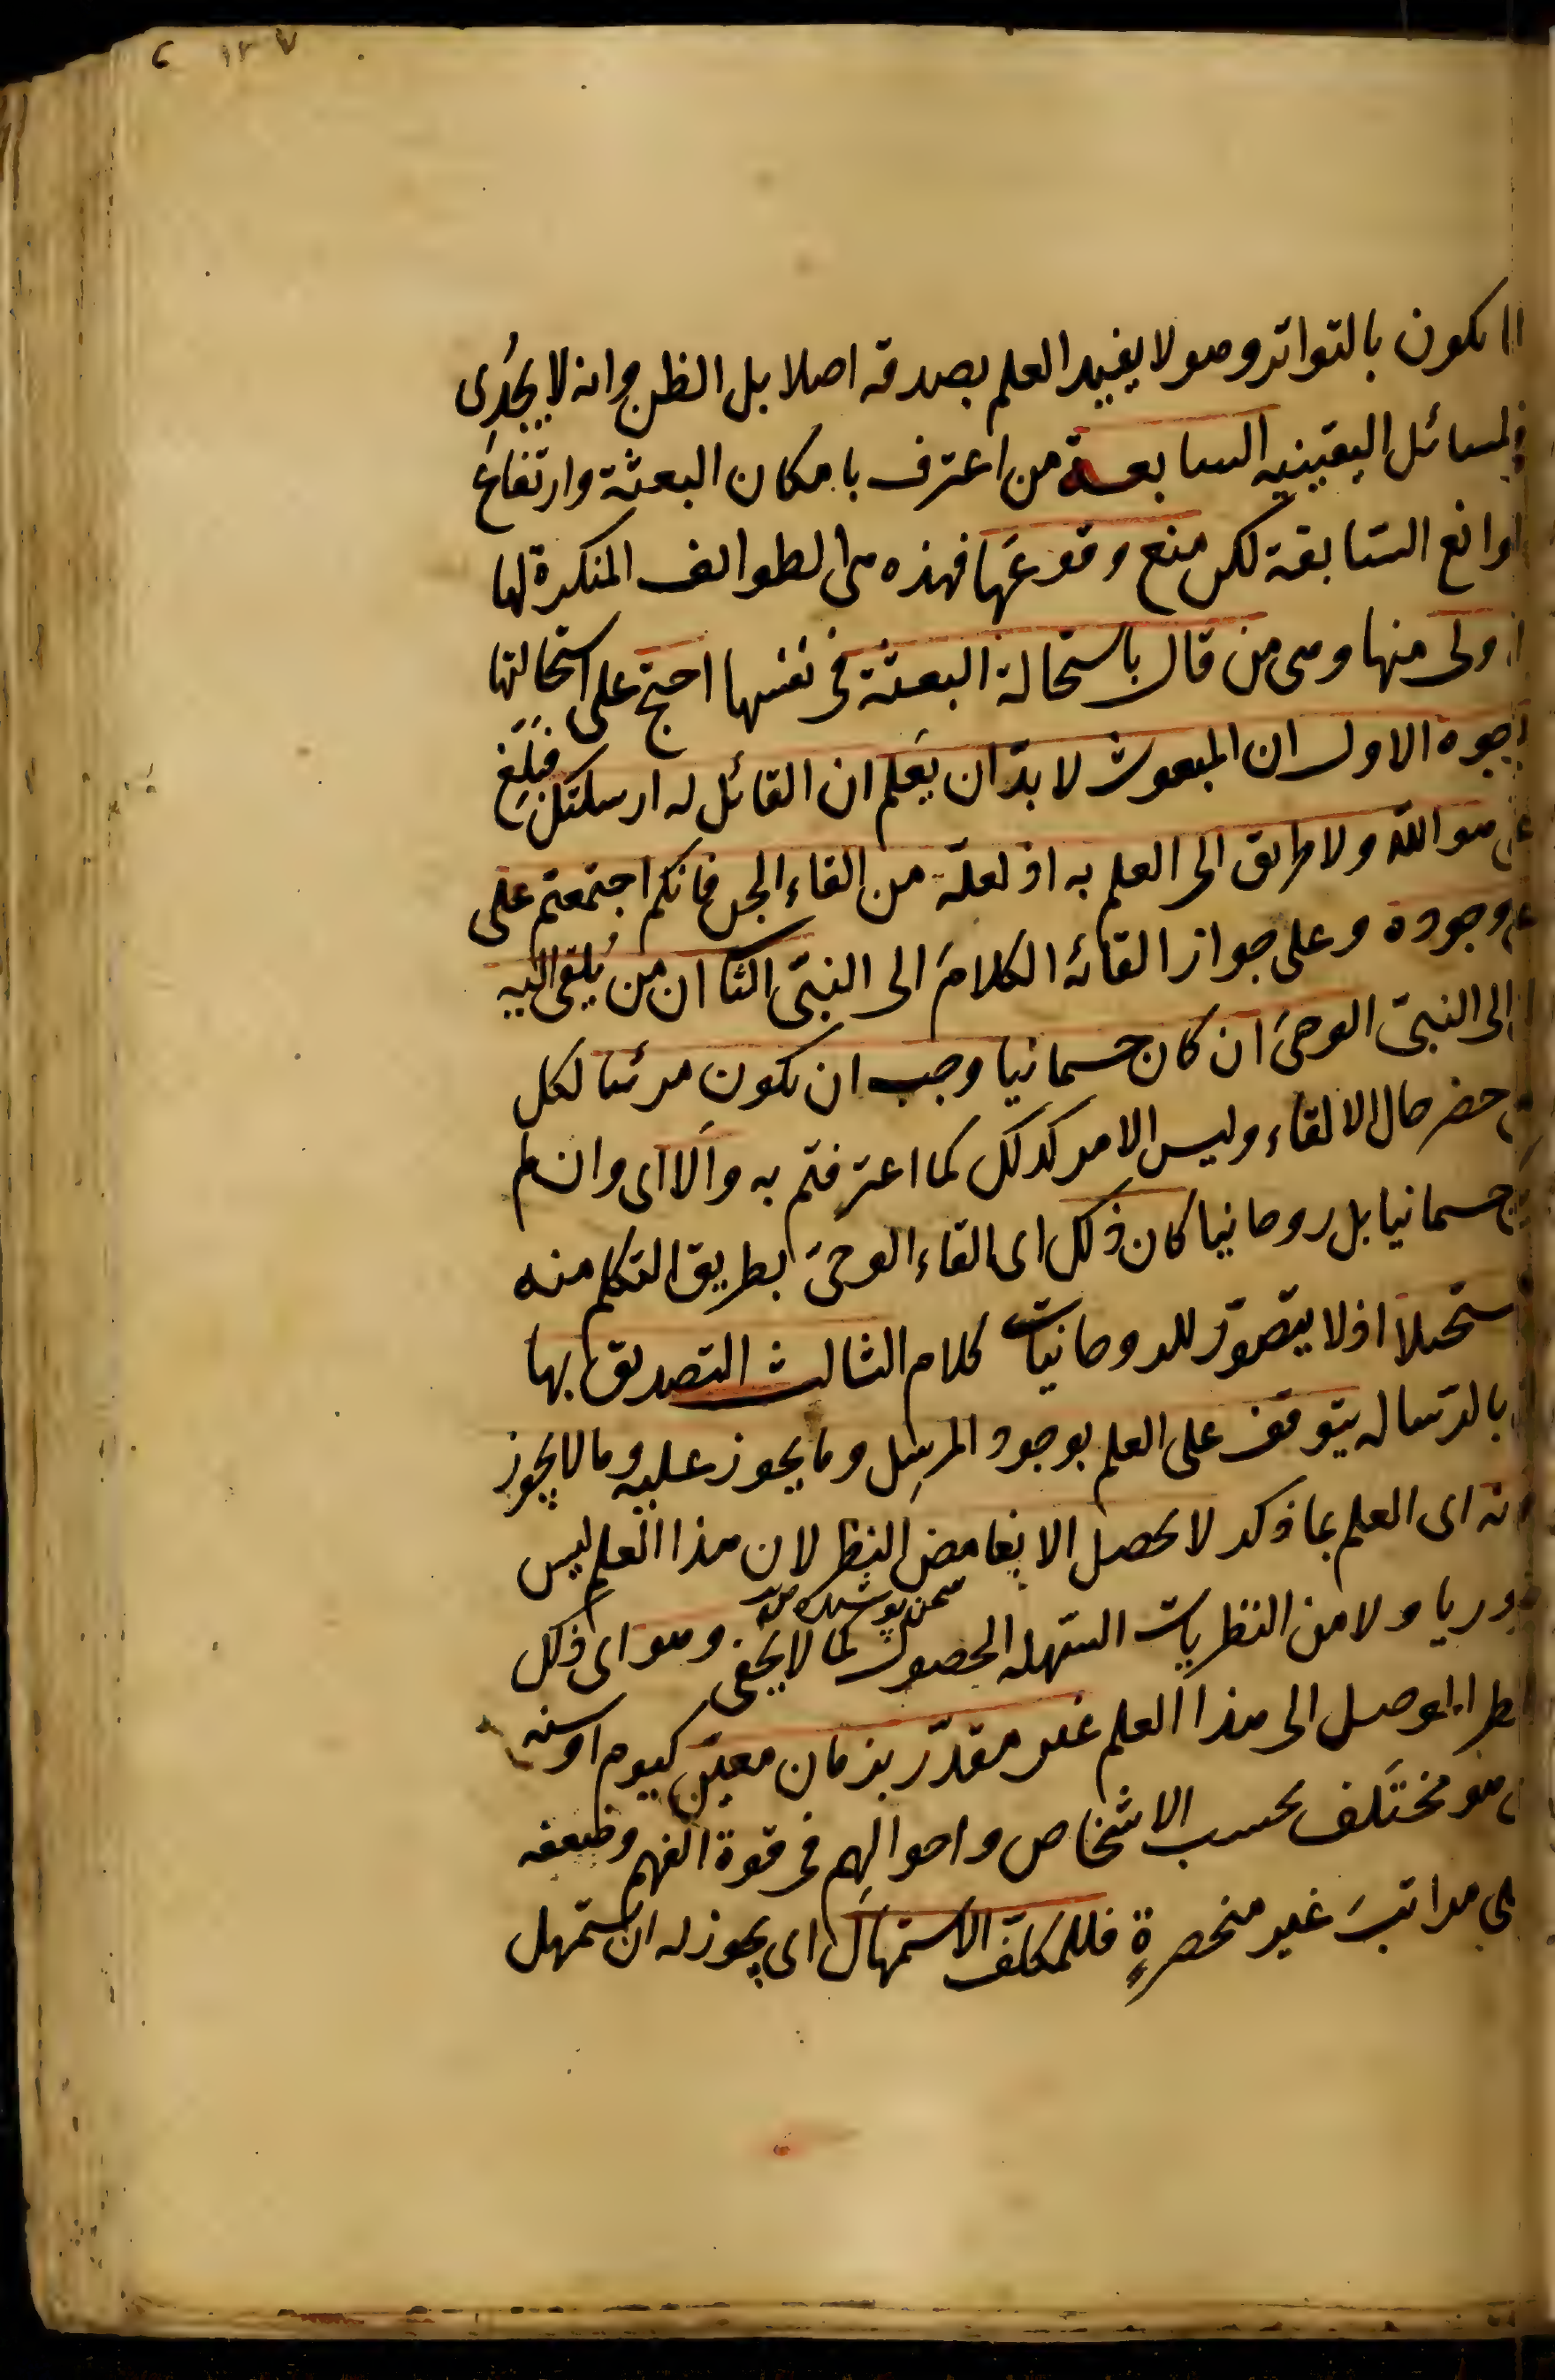 ١٢٧
انما يكون بالتواتر وهو لا يفيد العلم بصدقه اصلا بل الظن وانه لا يجدى
فى المسائل اليقينيه السابعة من اعترف بامكان البعثة وارتفاع
الموانع السّابقة لكن منع وقوعَها فهذه هى الطوائف المنكرة لها
الاولى منها وهى من قال باستحالة البعثة فى نفسها احتج على استحالتها
بوجوه الاول ان المبعوث لا بدّ ان يَعلم ان القائل له ارسلتك فبَلِّغ
عنى هو اللّه ولا طريق الى العلم به اذ لعلّه من القاء الجن فانكم اجتمعتم على
على وجوده وعلى جواز القائه الكلامَ الى النبىّ الثانى ان من يُلقى اليه
اى الى النبىّ الوحىَ ان كان جسمانيا وجب ان يكون مرئيا لكل
من حضر حال الالقاء وليس الامر كذلك كما اعترفتم به وَاَلا اى وان لم
يكن جسمانيا بل روحانيا كان ذلك اى القاء الوحى بطريق التكلم منه
مستحيلا اذ لا يتصوّر للروحانيات كلام الثالث التصديق بها
اى بالرّساله يتوقف على العلم بوجود المرسِل وما يجوز عليه وما لا يجوز
وانه اى العلم بما ذكر لا يحصل الا بغامض النظر لان هذا العلم ليس
ضروريا ولا من النظريات السّهله الحصول كما لا يخفى وهو اى ذلك
النظر الموصل الى هذا العلم غير مقدّر بزمان معيّن كيوم او سنه
بل هو مختَلف بحسب الاشخاص واحوالِهم فى قوة الفهم وضعفه
على مراتبَ غير منحصرةٍ فللمكلّف الاستمهال اى يجوز له ان يستمهل